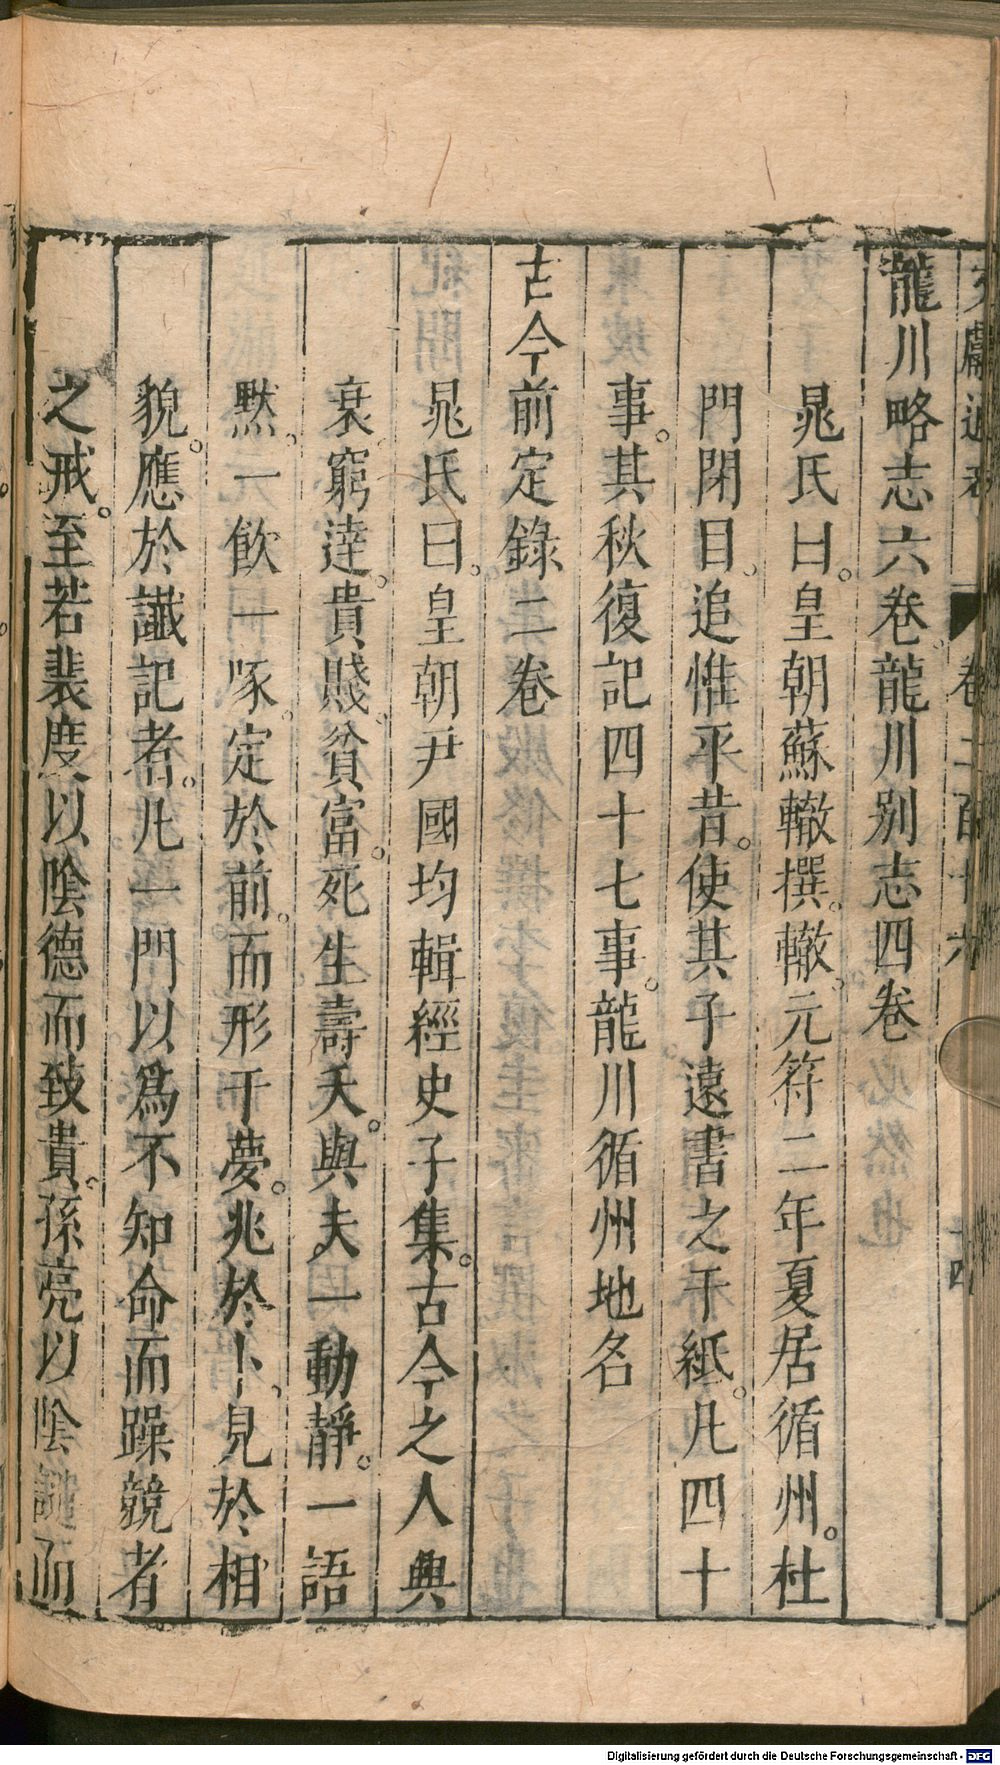 文獻通考 卷二百十六 十四
龍川略志六卷龍川別志四卷
晁氏曰皇朝蘇轍撰轍元符二年夏居循州。杜
門閉目追惟平昔。使其子遠書之于紙。凡四十
事。其秋復記四十七事。龍川循州地名
古今前定錄二卷
晁氏曰。皇朝尹國均輯經史子集。古今之人興
衰窮達。貴賤。貧富。死生壽夭。與夫一動靜。一語
默。一飲一啄。定於前。而形于夢。兆於卜、見於相
貌。應於讖記者。凡一門以爲不知命而躁競者
之戒。至若裴度以陰德而致貴。孫亮以陰謎而
Digitalisierung gefördert durch die Deutsche Forschungsgemeinschaft - DFG